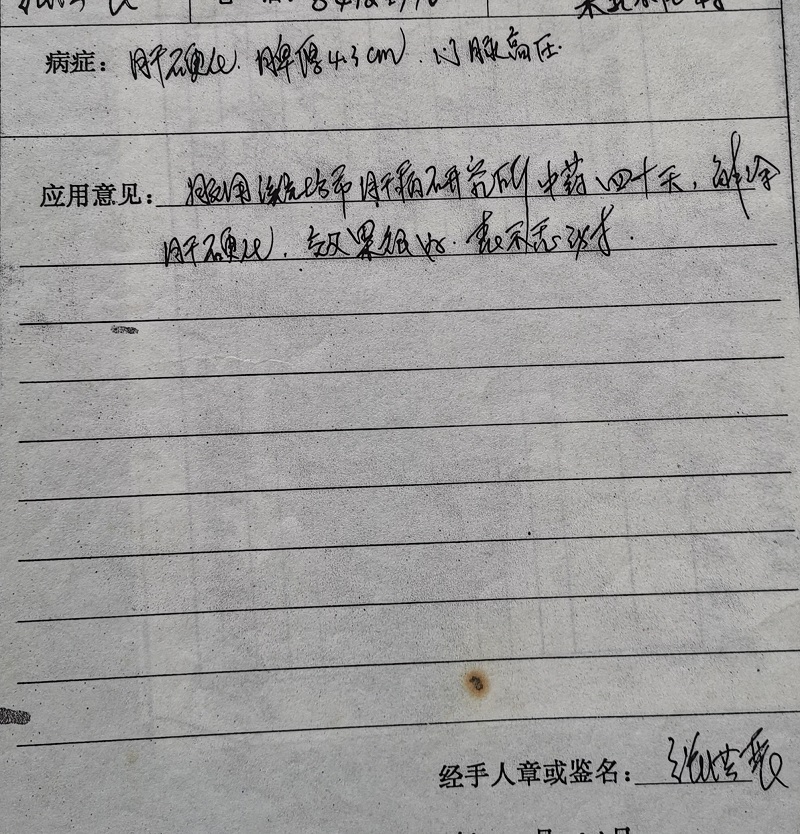 病症：肝硬化．脾厚4.3cm．门脉高压．
应用意见：服用潍坊市肝病研究所中药四十天，解除
肝硬化．效果很好．表示感谢．
经手人章或签名：